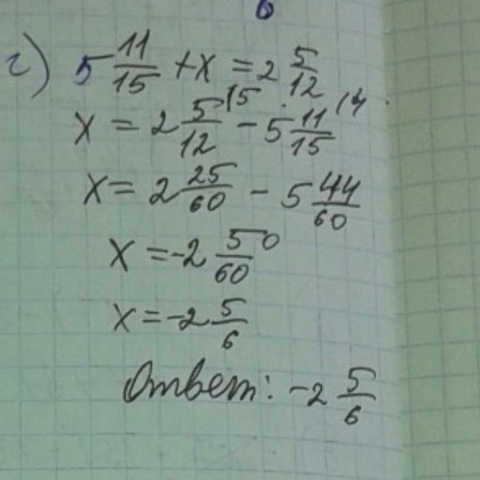 г) 5 11/15 + x = 2 5/12
x = 2 5/12 ¹⁵ - 5 11/15 ¹⁴
x = 2 25/60 - 5 44/60
x = -2 50/60
x = -2 5/6
Ответ: -2 5/6